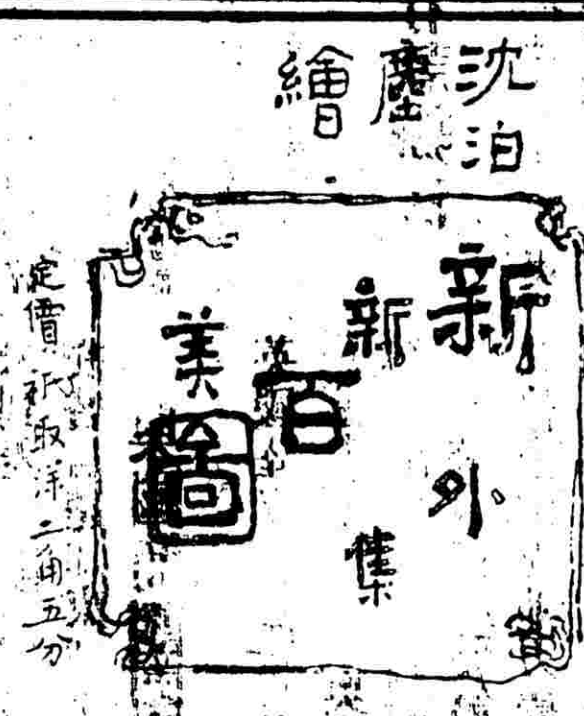 沈泊
塵
繪
新新百美圖
外集
定價祇取洋二角五分